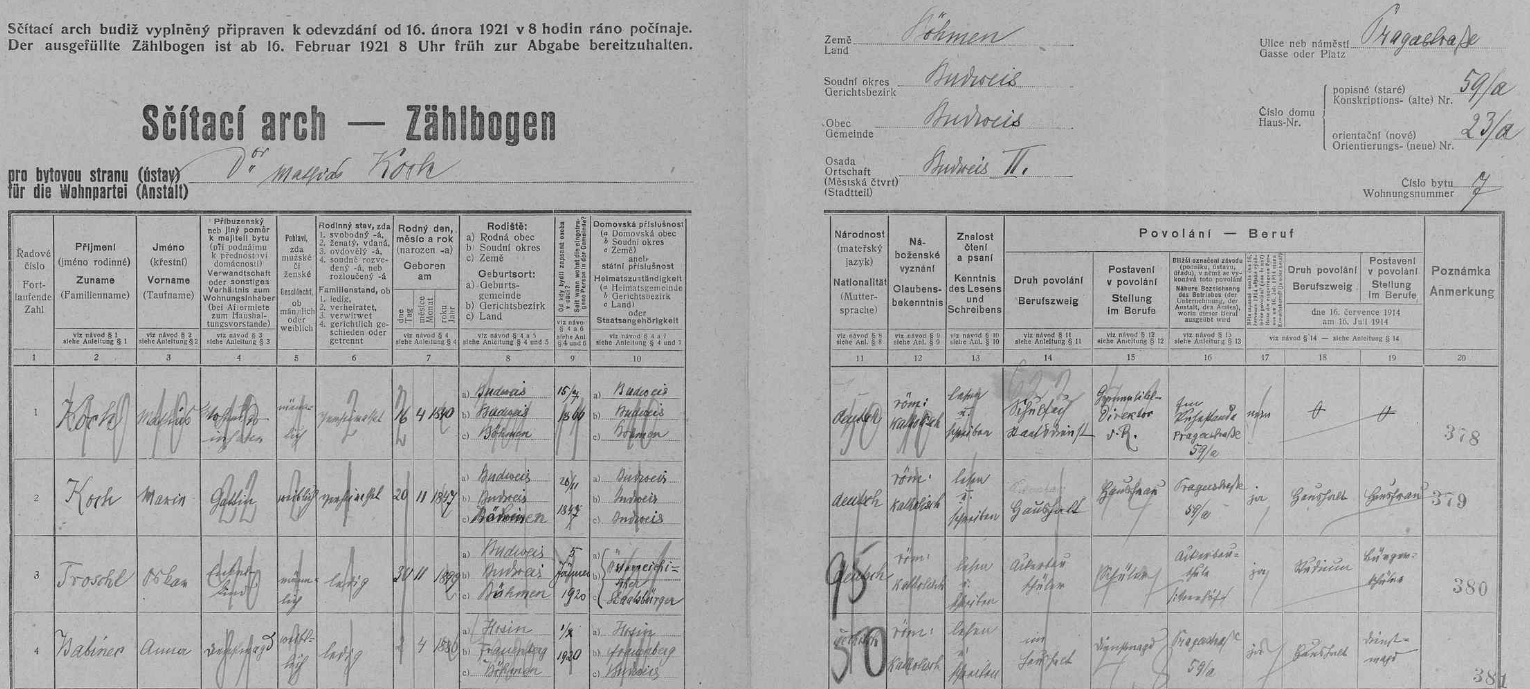 Sčítací arch budiž vyplněný připraven k odevzdání od 16. února 1921 v 8 hodin ráno počínaje.
Der ausgefüllte Zählbogen ist ab 16. Februar 1921 8 Uhr früh zur Abgabe bereitzuhalten.
Sčítací arch — Zählbogen
pro bytovou stranu (ústav)
für die Wohnpartei (Anstalt)
Dor Mathias Koch
Země
Land
Böhmen
Soudní okres
Gerichtsbezirk
Budweis
Obec
Gemeinde
Budweis
Osada
Ortschaft
(Městská čtvrť)
(Stadtteil)
Budweis II.
Ulice neb náměstí
Gasse oder Platz
Pragastraße
Číslo domu
Haus-Nr.
popisné (staré)
Konskriptions- (alte) Nr.
59/a
orientační (nové)
Orientierungs- (neue) Nr.
23/a
Číslo bytu
Wohnungsnummer
7
Řadové
číslo
Fort-
laufende
Zahl
1
Příjmení
(jméno rodinné)
Zuname
(Familienname)
viz návod § 1
siehe Anleitung § 1
2
Jméno
(křestní)
Vorname
(Taufname)
viz návod § 2
siehe Anleitung § 2
3
Příbuzenský
neb jiný poměr
k majiteli bytu
(při podnájmu
k přednostovi
domácnosti)
Verwandtschaft
oder sonstiges
Verhältnis zum
Wohnungsinhaber
(bei Aftermiete
zum Haushal-
tungsvorstande)
viz návod § 3
siehe Anleitung § 3
4
Pohlaví,
zda
mužské
či
ženské
Geschlecht,
ob
männlich
oder
weiblich
5
Rodinný stav, zda
1. svobodný -á,
2. ženatý, vdaná,
3. ovdovělý -á,
4. soudně rozve-
dený -á, neb
rozloučený -á
Familienstand, ob
1. ledig,
2. verheiratet,
3. verwitwet
4. gerichtlich ge-
schieden oder
getrennt
6
Rodný den,
měsíc a rok
(narozen -a)
Geboren
am
dne
Tag
měsíce
Monat
roku
Jahr
viz návod § 4
siehe Anleitung § 4
7
Rodiště:
a) Rodná obec
b) Soudní okres
c) Země
Geburtsort:
a) Geburts-
gemeinde
b) Gerichtsbezirk
c) Land
viz návod § 4 a 5
siehe Anleitung § 4 und 5
8
9
Domovská příslušnost
(a Domovská obec
b Soudní okres
c Země)
aneb
státní příslušnost
Heimatszuständigkeit
(a Heimatsgemeinde
b Gerichtsbezirk
c Land)
oder
Staatsangehörigkeit
viz návod § 4 a 7
siehe Anleitung § 4 und 7
10
Národnost
(mateřský
jazyk)
Nationalität
(Mutter-
sprache)
viz návod § 8
siehe Anl. § 8
11
Ná-
boženské
vyznání
Glaubens-
bekenntnis
viz návod § 9
siehe Anl. § 9
12
Znalost
čtení
a psaní
Kenntnis
des Lesens
und
Schreibens
viz návod § 10
siehe Anl. § 10
13
Povolání — Beruf
Druh povolání
Berufszweig
viz návod § 11
siehe Anleitung § 11
14
Postavení
v povolání
Stellung
im Berufe
viz návod § 12
siehe Anleitung § 12
15
16
17
Druh povolání
Berufszweig
18
Postavení
v povolání
Stellung
im Berufe
19
dne 16. července 1914
am 16. Juli 1914
viz návod § 14 — siehe Anleitung § 14
Poznámka
Anmerkung
20
1 Koch Mathias
männ-
lich
verheiratet
4 1840
a) Budweis
b) Budweis
c) Böhmen
a) Budweis
b) Budweis
c) Böhmen
deutsch
röm:
katholisch
lesen
u.
schreiben
Staatsdienst
Direktor
i. R.
Pragastraße
59/a
378
2 Koch Marie Gattin weiblich verheiratet 20 11 1847
a) Budweis
b) Budweis
c) Böhmen
1847
a) Budweis
b) Budweis
c) Budweis
deutsch
röm:
katholisch
lesen
u.
schreiben
Haushalt
Hausfrau
Pragastraße
59/a
ja
Haushalt
Hausfrau
379
3 Troschl Oskar
männ-
lich
ledig
30 11 1899
a) Budweis
b) Budweis
c) Böhmen
5
Jänner
1920
Österreichi-
scher
Staatsbürger
95
deutsch
röm:
katholisch
lesen
u.
schreiben
Ackerbau
schüler
Schüler
Ackerbau-
schule
ja
Studium
Bürger-
schüler
380
4 Babinec Anna Dienstmagd
weib-
lich
ledig
2 4 1886
a) Hosin
b) Frauenberg
c) Böhmen
1920
a) Hosin
b) Frauenberg
c) Budweis
50
röm:
katholisch
lesen
u.
schreiben
im
Haushalt
Dienstmagd
Pragastraße
59/a
ja
Haushalt
Dienst-
magd
381